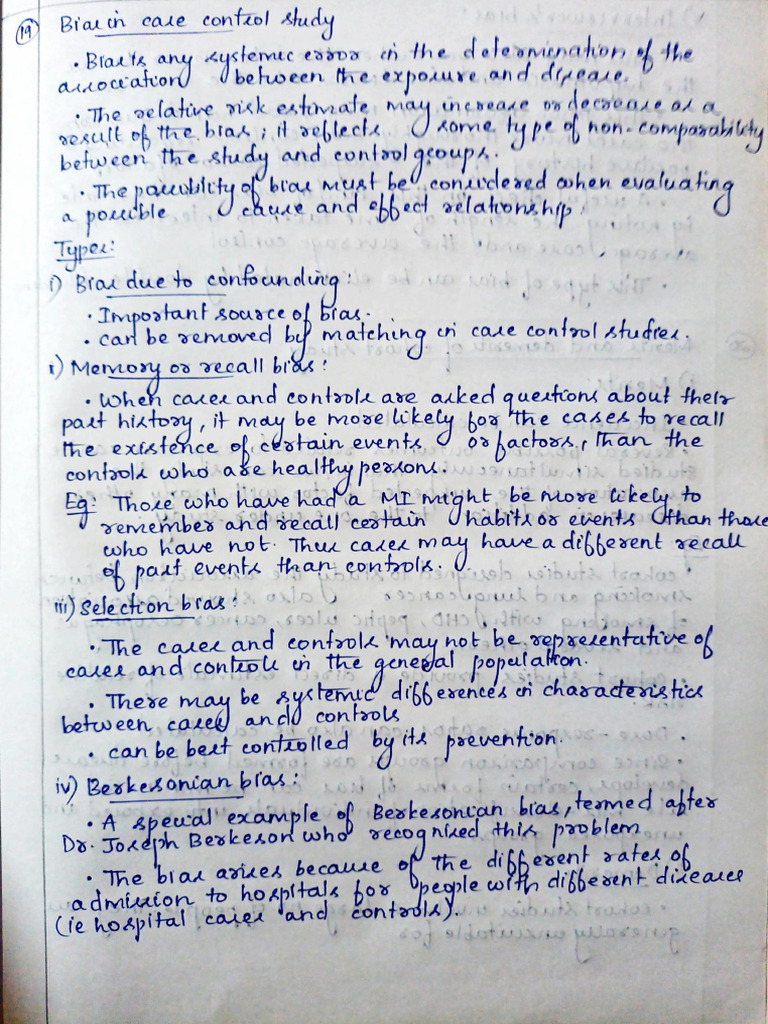 19 Bias in case control study
• Bias is any systemic error in the determination of the
association between the exposure and disease.
• The relative risk estimate may increase or decrease as a
result of the bias; it reflects some type of non-comparability
between the study and control groups.
• The possibility of bias must be considered when evaluating
a possible cause and effect relationship.
Types:
i) Bias due to confounding:
• Important source of bias.
• can be removed by matching in case control studies.
ii) Memory or recall bias:
• When cases and controls are asked questions about their
past history, it may be more likely for the cases to recall
the existence of certain events or factors, than the
controls who are healthy persons.
Eg: Those who have had a MI might be more likely to
remember and recall certain habits or events than those
who have not. Thus cases may have a different recall
of past events than controls.
iii) Selection bias:
• The cases and controls may not be representative of
cases and controls in the general population.
• There may be systemic differences in characteristics
between cases and controls
• can be best controlled by its prevention.
iv) Berkesonian bias:
• A special example of Berkesonian bias, termed after
Dr. Joseph Berkeson who recognised this problem
• The bias arises because of the different rates of
admission to hospitals for people with different diseases
(ie hospital cases and controls).